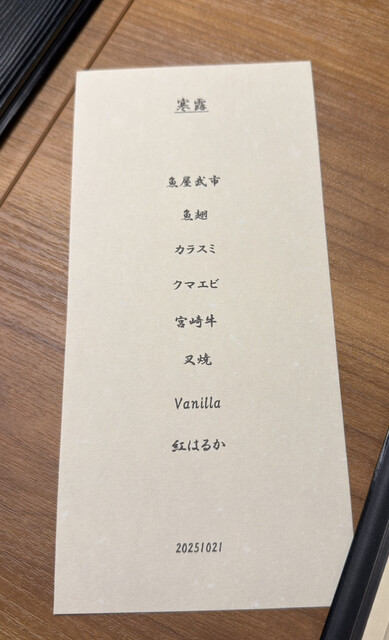 寒露
魚屋武市
魚翅
カラスミ
クマエビ
宮崎牛
叉焼
Vanilla
紅はるか
20251021